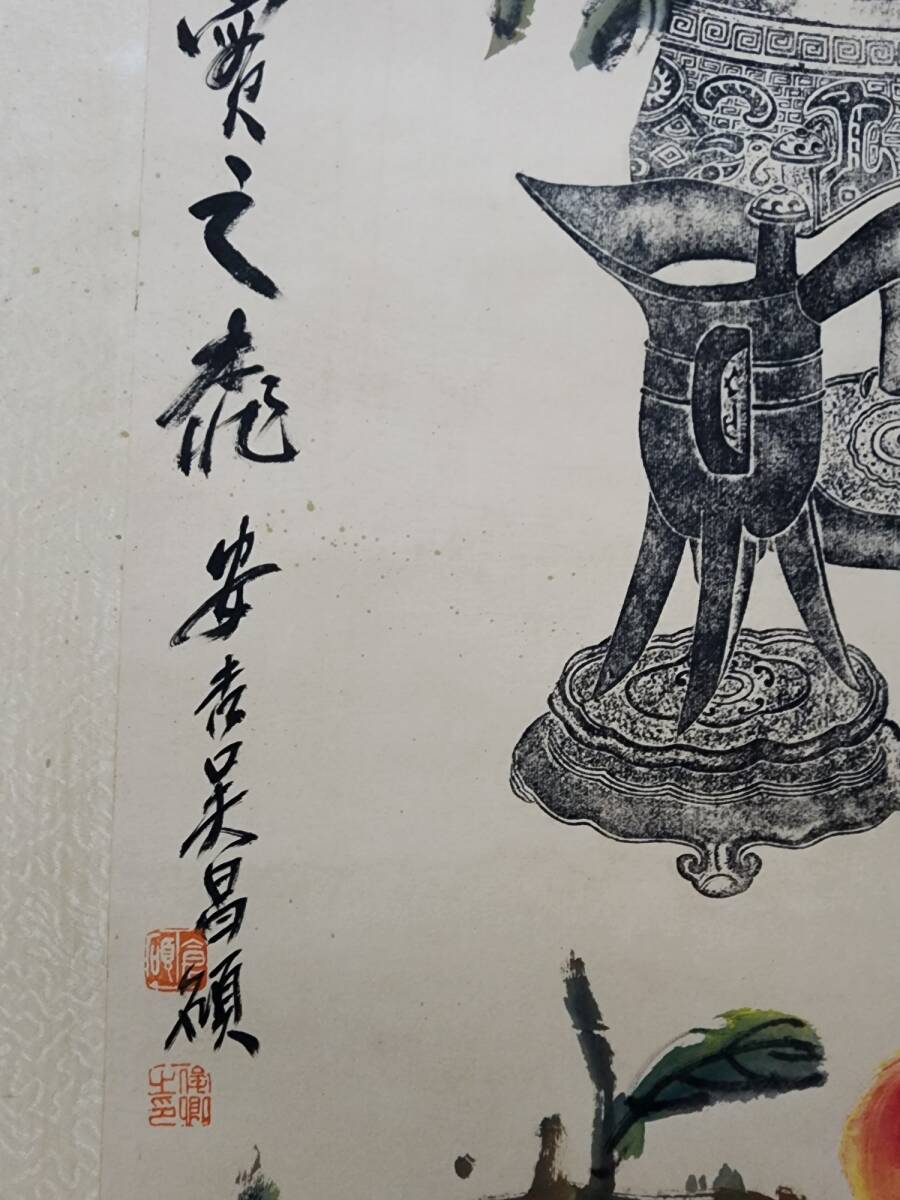 之
安吉吳昌碩
倉碩
俊卿之印